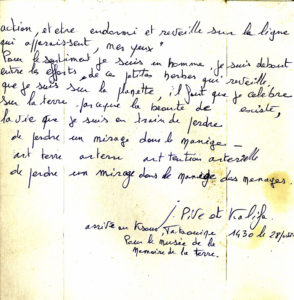 action, et être endormi et réveillé sur la ligne
qui apparaissent, mes yeux"
Pour le sentiment je suis un homme, je suis debout
entre les efforts, de ce petites herbes qui réveille
que je suis sur la planète, il faut que je célèbre
sur la terre parceque la beauté de existe,
la vie que je suis en train de perdre
de perdre un mirage dans le manège _
art terre arterre art tention
de perdre un mirage dans le manège des menages.
J. Pive et Kalifa
arrivé au Ksour, Tataouine 1430 le
Pour le musée de la
Memoire de la terre.